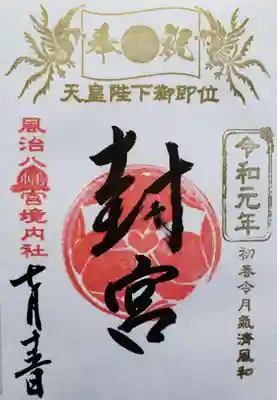 奉祝
天皇陛下御即位
令和元年
初春令月氣清風和
封宮
風治八幡宮境内社
七月